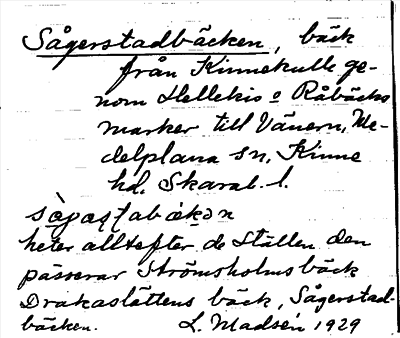 Sågerstadbäcken, bäck
från Kinnekulle ge-
nom Hellekis o Råbäcks
marker till Vänern, Me-
delplana sn, Kinne
hd, Skarab. l.
heter allt efter de ställen den
passerar Strömsholmsbäck
Drakaslättens bäck, Sågerstad-
bäcken. L. Madsén 1929